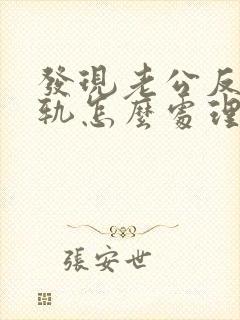 發現老公反
軌怎麼處理
張安世